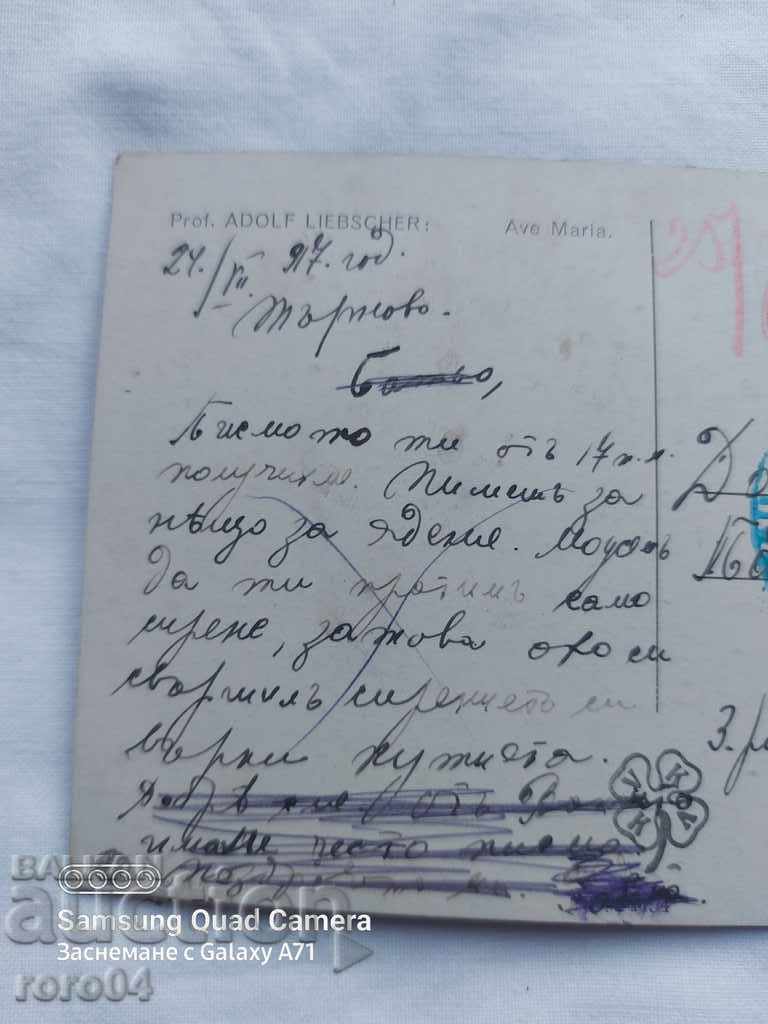 Prof. ADOLF LIEBSCHER: Ave Maria.
24./VII. 917. год.
Търново.
Батьо,
Писмото ти от 17 т.м.
получихме. Пишешъ за
нѣщо за ядене. Можемъ
да ти пратимъ само
сирене, затова ако си
свършилъ сиренцето си
върни кутията.
Добрѣ сме. Отъ
имаме често писма
25/
До
3.
У К К Л К
БАЛКАН
auction
roro04
Samsung Quad Camera
Заснемане с Galaxy A71